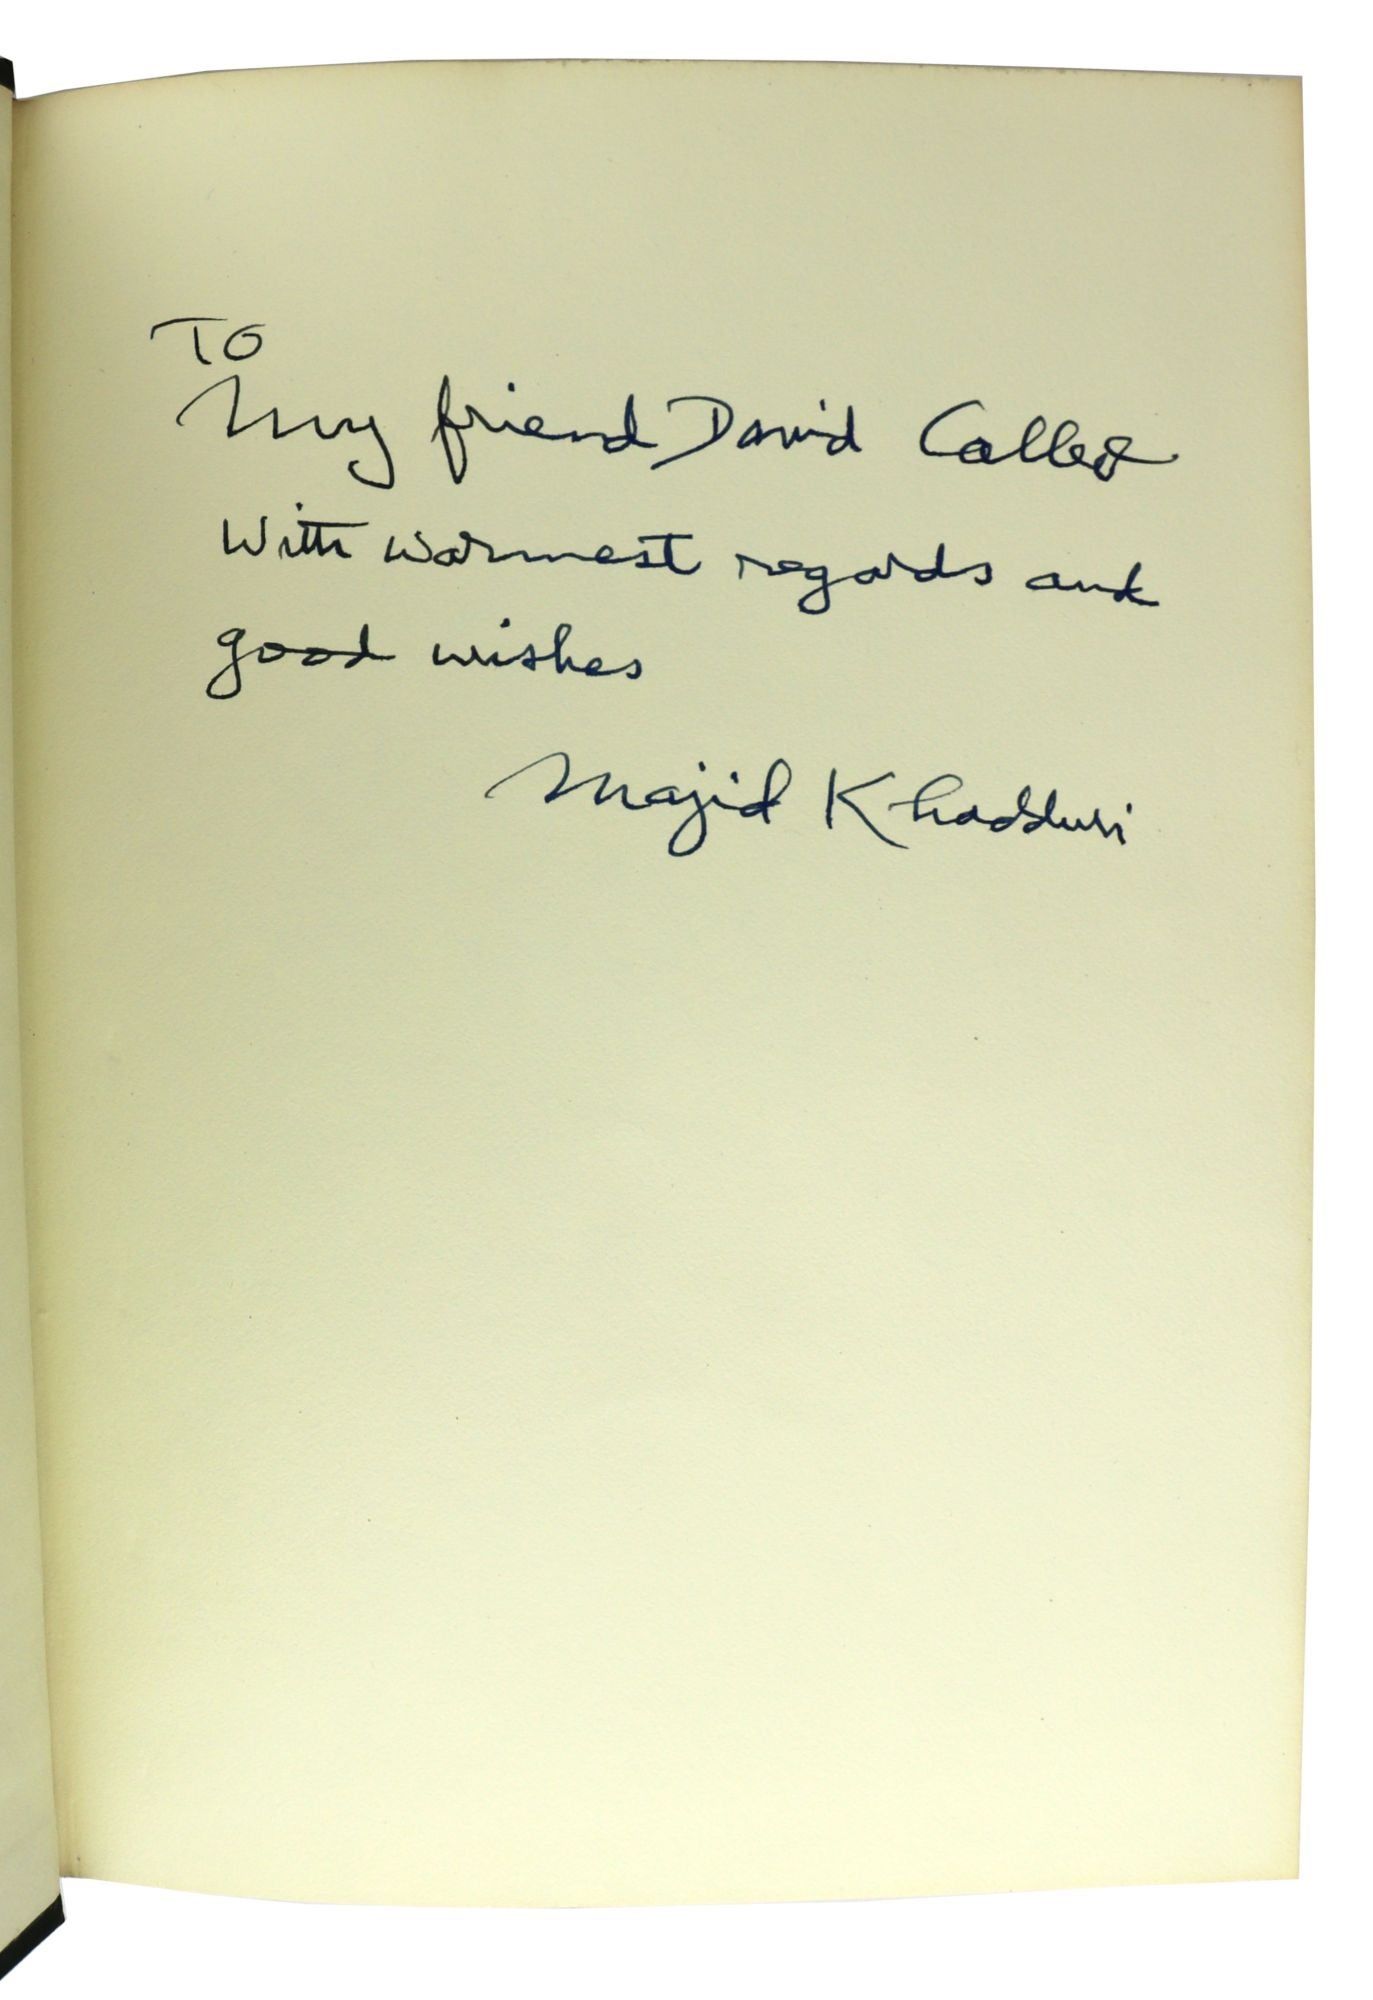 To
My friend David Calleo
With warmest regards and
good wishes
Majid Khadduri